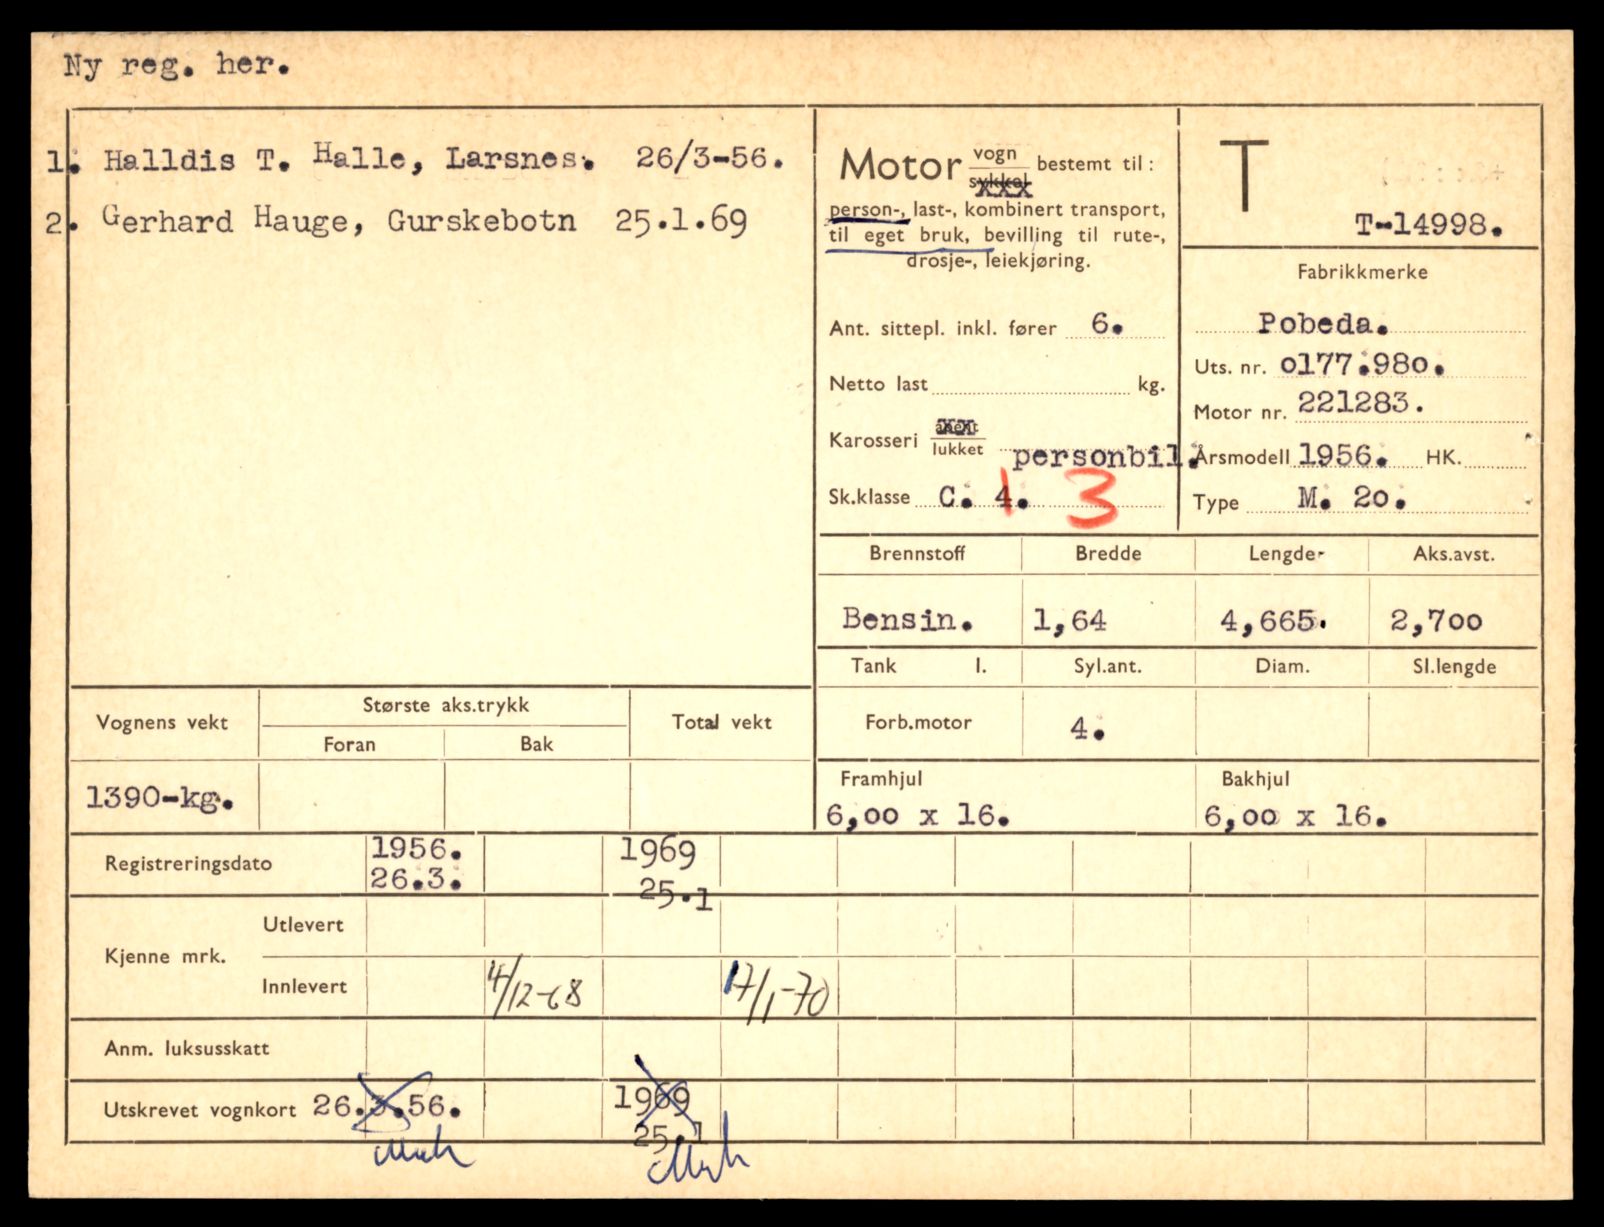 Ny reg. her.
1. Halldis T. Halle, Larsnes. 26/3-56.
2. Gerhard Hauge, Gurskebotn 25.1.69
Motor vogn sykkel bestemt til :
person-, last-, kombinert transport,
til eget bruk, bevilling til rute-,
drosje-, leiekjøring.
Ant. sittepl. inkl. fører 6.
Netto last kg.
Karosseri åpent lukket personbil.
Sk.klasse C. 4. 3
T
T-14998.
Fabrikkmerke
Pobeda.
Uts. nr. o177.98o.
Motor nr. 221283.
Årsmodell 1956. HK.
Type M. 2o.
Brennstoff Bredde Lengde Aks.avst.
Bensin. 1,64 4,665. 2,7oo
Tank l. Syl.ant. Diam. Sl.lengde
Forb.motor 4.
Vognens vekt Største aks.trykk Total vekt
Foran Bak
1390-kg.
Framhjul Bakhjul
6,oo x 16. 6,oo x 16.
Registreringsdato 1956. 1969
26.3. 25.1
Kjenne mrk. Utlevert
Innlevert 4/12-68 17/1-70
Anm. luksusskatt
Utskrevet vognkort 26.3.56. 1969
25.1